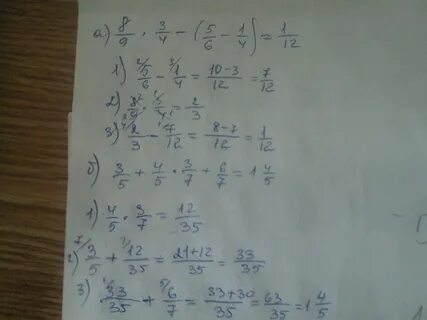 а) 8/9 · 3/4 − (5/6 − 1/4) = 1/12
1) 5/6 − 1/4 = (10−3)/12 = 7/12
2) 8/9 · 3/4 = 2/3
3) 2/3 − 7/12 = (8−7)/12 = 1/12
б) 3/5 + 4/5 · 3/7 + 6/7 = 1 4/5
1) 4/5 · 3/7 = 12/35
2) 3/5 + 12/35 = (21+12)/35 = 33/35
3) 33/35 + 6/7 = (33+30)/35 = 63/35 = 1 4/5